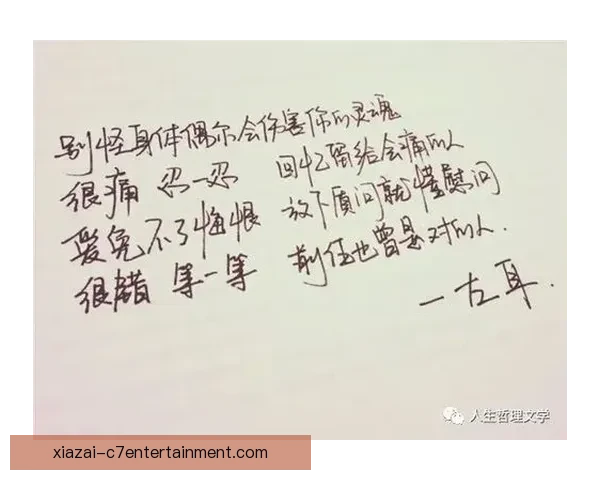 别怪身体偶尔会伤害你的灵魂
很痛 忍一忍 回忆留给会痛的人
爱免不了悔恨 放下质问就懂慰问
很错 等一等 前任也曾是对的人.
一左耳.
人生哲理文学
xiazai-c7entertainment.com